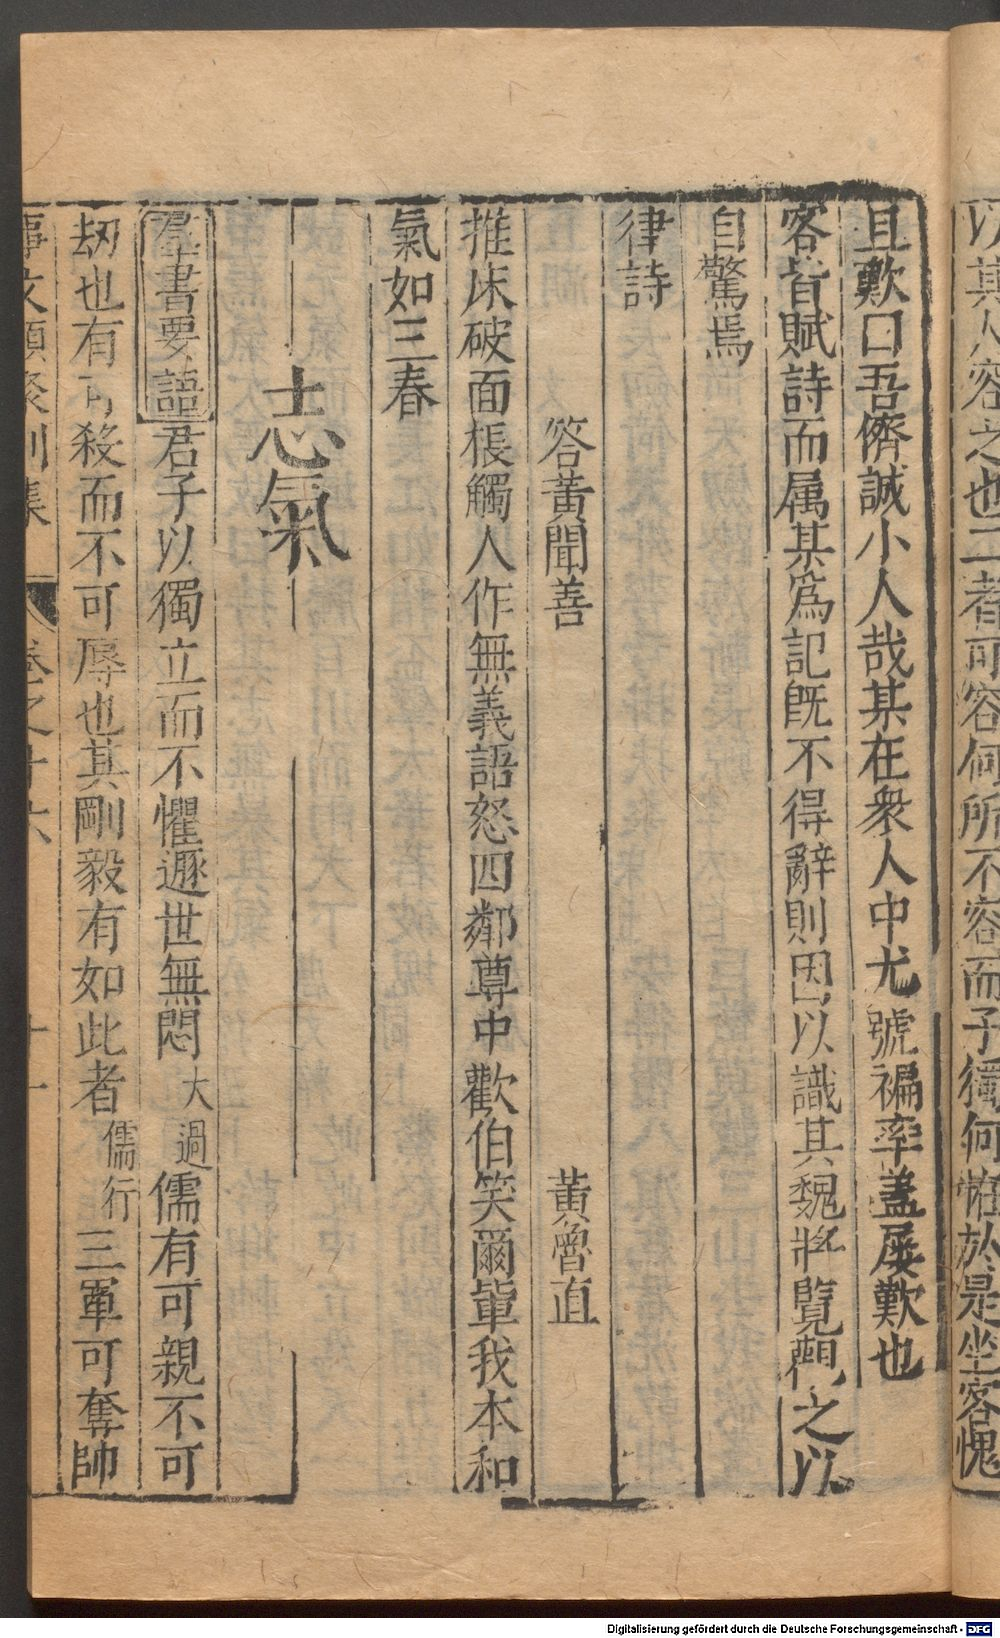 以其人容之也二者可容何所不容而子獨何恠於是坐客愧
且歎曰吾儕誠小人哉某在衆人中尤號褊率盖屡歎也
客皆賦詩而属某爲記旣不得辭則因以識其魏將覽覿之以
自驚焉
律詩
答黃聞善 黃魯直
推床破面棖觸人作無義語怒四鄰尊中歡伯笑爾軰我本和
氣如三春
志氣
羣書要語君子以獨立而不懼遯世無悶大過儒有可親不可
刼也有可殺而不可辱也其剛毅有如此者儒行三軍可奪帥
事文類聚別集 卷之十六 十一
Digitalisierung gefördert durch die Deutsche Forschungsgemeinschaft - DFG